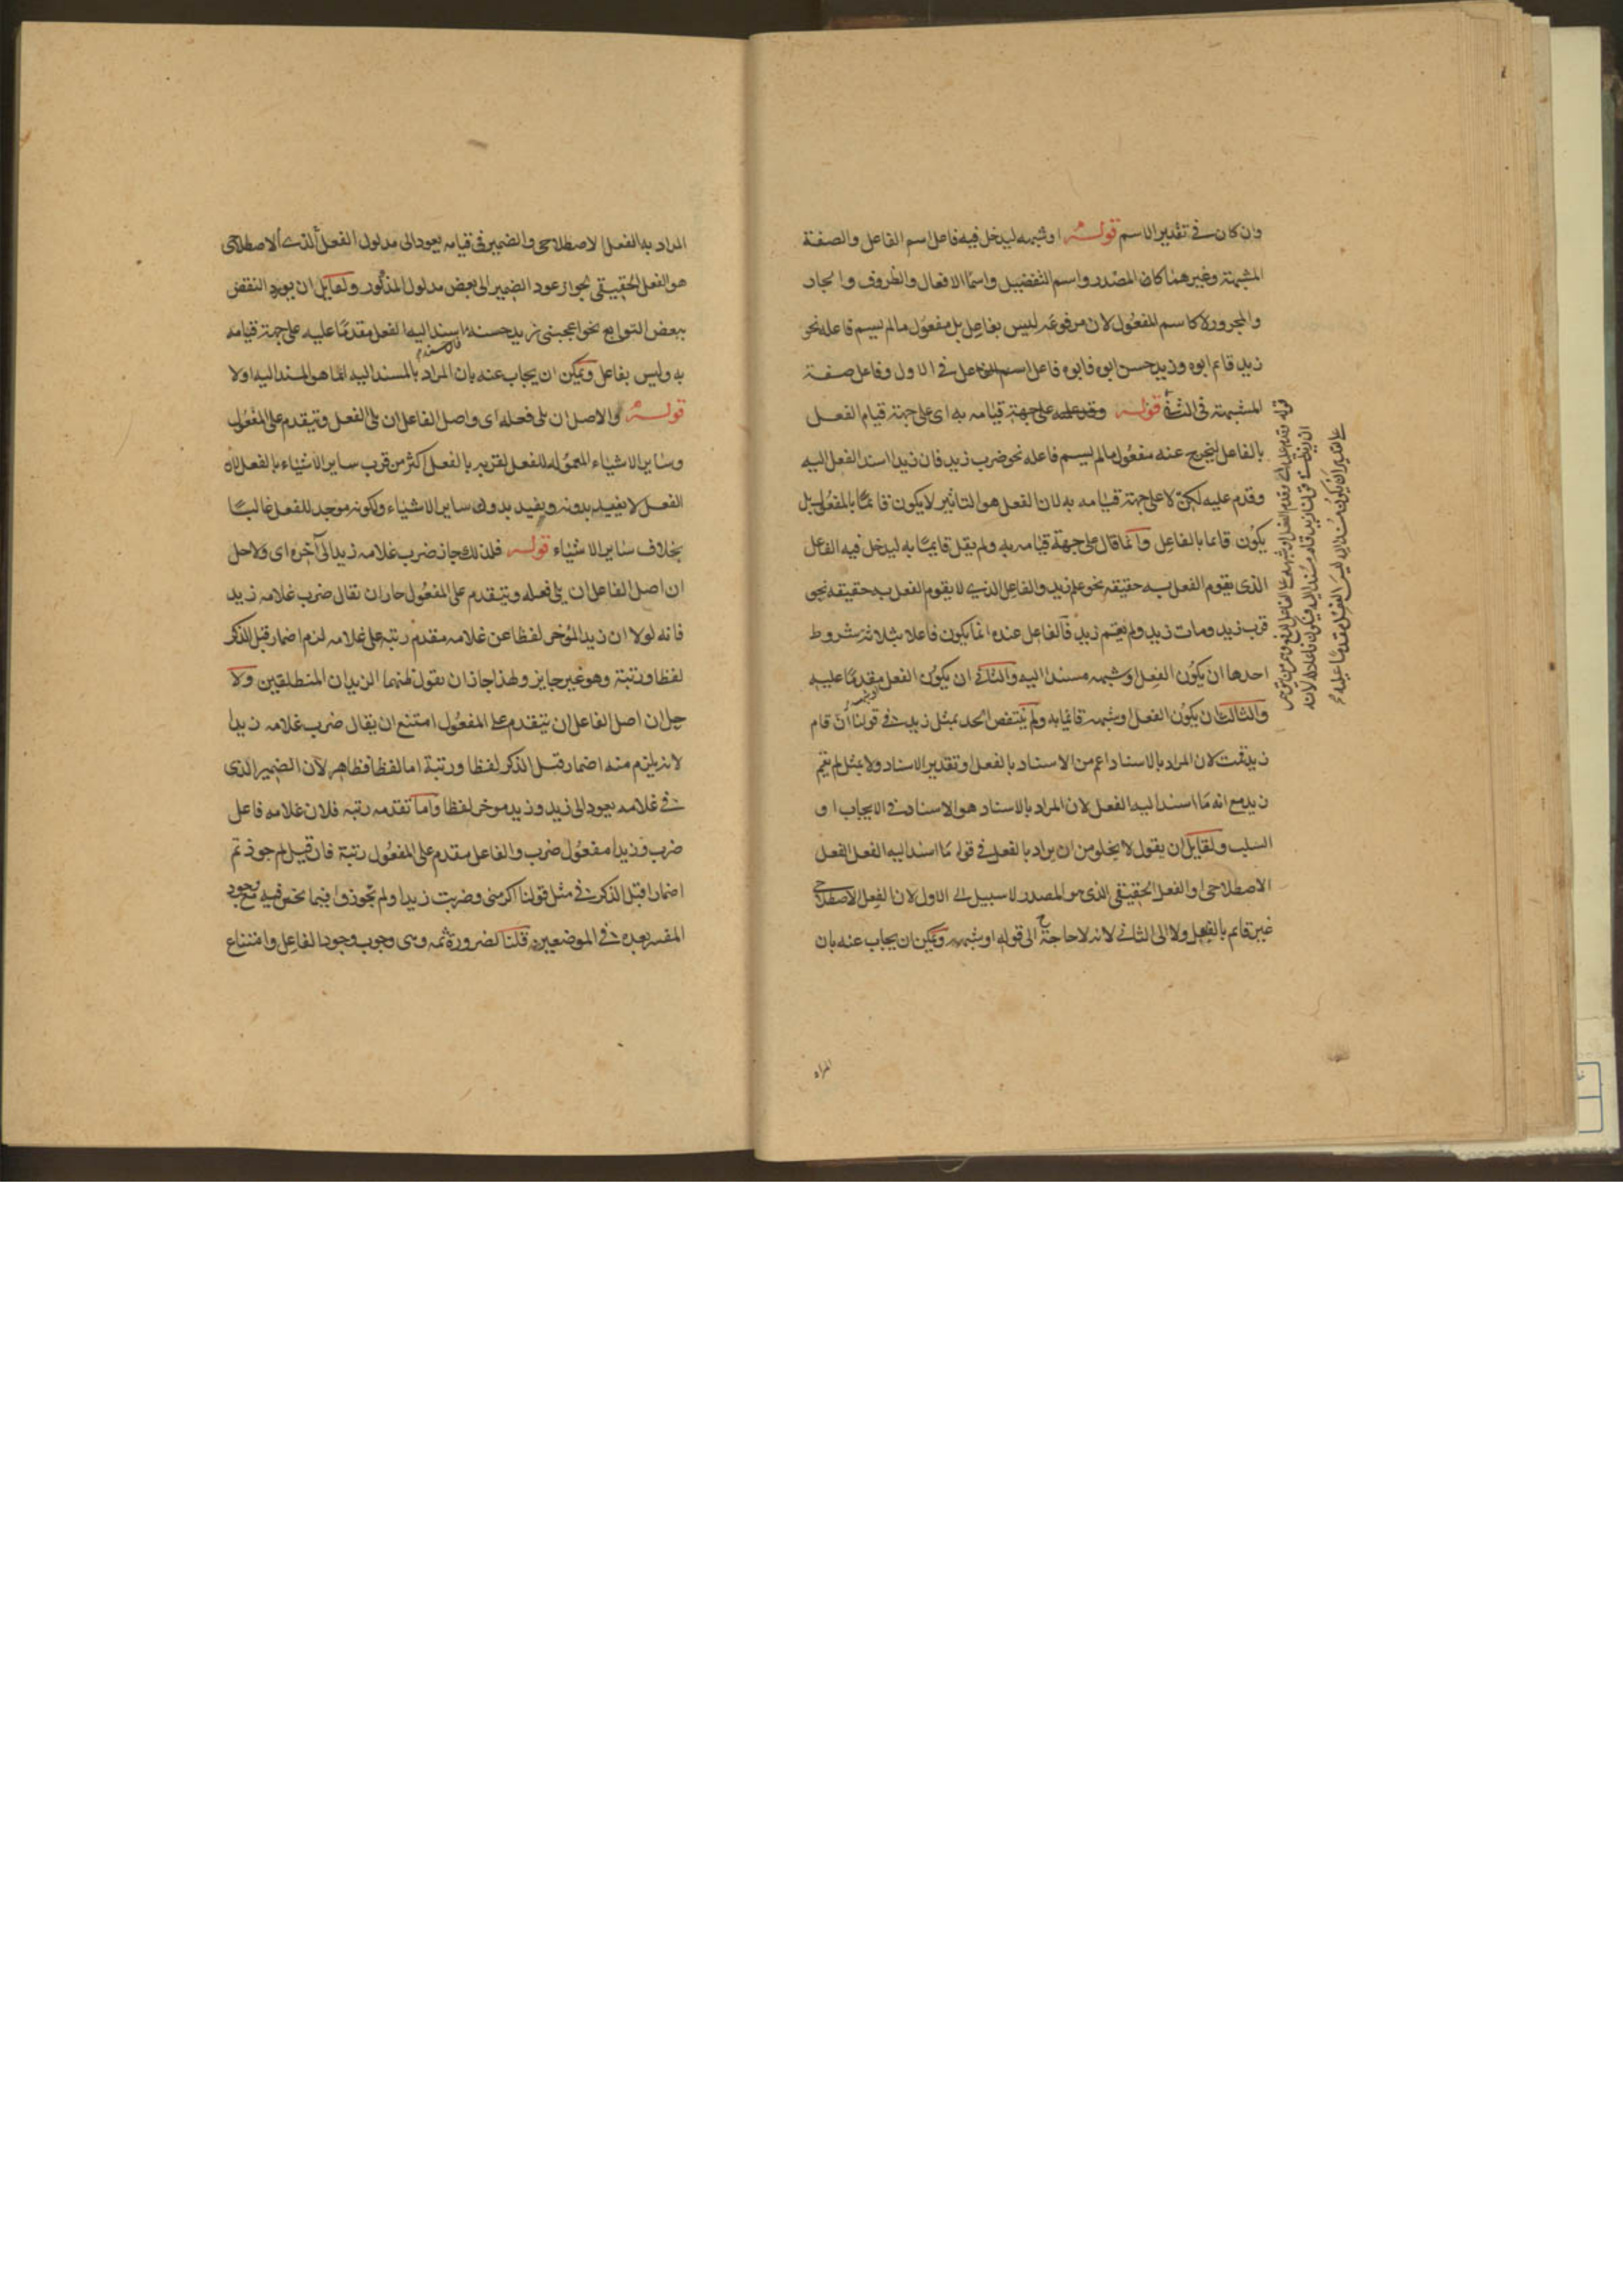 وان كان في تقدير الاسم قوله او شبهه ليدخل فيه فاعل اسم الفاعل والصفة
المشبهة وغيرهما كالمصدر واسم التفضيل واسما الافعال والظروف والجار
والمجرور لا كاسم المفعول لان مرفوعه ليس بفاعل بل مفعول مالم يسم فاعله نحو
زيد قائم ابوه وزيد حسن ابوه فابوه فاعل اسم الفاعل في الاول وفاعل صفة
المشبهة في الثاني قوله وقدم عليه على جهة قيامه به اى على جهة قيام الفعل
بالفاعل ليخرج عنه مفعول مالم يسم فاعله نحو ضرب زيد فان زيدا اسند الفعل اليه
وقدم عليه لكن لا على جهة قيامه به لان الفعل هو التاثير لا يكون قائما بالمفعول بل
يكون قائما بالفاعل وانما قال على جهة قيامه به ولم يقل قائما به ليدخل فيه الفاعل
الذى يقوم الفعل به حقيقة نحو علم زيد والفاعل الذي لا يقوم الفعل به حقيقه نحو
قرب زيد ومات زيد ولم يقم زيد فالفاعل عنده انما يكون فاعلا بثلاثة شروط
احدها ان يكون الفعل وشبهه مسندا اليه والثاني ان يكون الفعل وشبهه مقدما عليه
والثالث ان يكون الفعل او شبهه قائما به ولم ينتقض الحد بمثل زيد في قولنا ان قام
زيد قمت لان المراد بالاسناد اعم من الاسناد بالفعل وتقدير الاسناد ولا بمثل لم يقم
زيد مع انه ما اسند اليه الفعل لان المراد بالاسناد هو الاسناد في الايجاب او
السلب ولقايل ان يقول لا يخلو من ان يراد بالفعل في قوله ما اسند اليه الفعل الفعل
الاصطلاحى او الفعل الحقيقى الذى هو المصدر لا سبيل الى الاول لان الفعل الاصطلاحى
غير قائم بالفاعل ولا الى الثاني لانه لا حاجة ح الى قوله او شبهه ويمكن ان يجاب عنه بان
المراد
المراد به الفعل الاصطلاحى والضمير في قيامه يعود الى مدلول الفعل الذى الاصطلاحى
هو الفعل الحقيقى لجواز عود الضمير الى بعض مدلول المذكور ولقايل ان يورد النقض
ببعض التوابع نحو اعجبنى زيد حسنه اسند اليه الفعل مقدما عليه على جهة قيامه
به وليس بفاعل ويمكن ان يجاب عنه بان المراد بالمسند اليه انما هو المسند اليه اولا
قوله والاصل ان يلى فعله اى واصل الفاعل ان يلى الفعل ويتقدم على المفعول
وساير الاشياء المعمولة للفعل لقربه بالفعل اكثر من قرب ساير الاشياء بالفعل لان
الفعل لا يفيد بدونه ويفيد بدون ساير الاشياء ولكونه موجد للفعل غالبا
بخلاف ساير الاشياء قوله فلذلك جاز ضرب غلامه زيد الى آخره اى ولاجل
ان اصل الفاعل ان يلى فعله ويتقدم على المفعول جاز ان تقال ضرب غلامه زيد
فانه لولا ان زيد المؤخر لفظا عن غلامه مقدم رتبة على غلامه لزم اضمار قبل الذكر
لفظا ورتبة وهو غير جايز ولهذا جاز ان نقول ظنهما الزيدان المنطلقين ولا
جل ان اصل الفاعل ان يتقدم على المفعول امتنع ان يقال ضرب غلامه زيدا
لانه يلزم منه اضمار قبل الذكر لفظا ورتبة اما لفظا فظاهر لان الضمير الذى
في غلامه يعود الى زيد وزيد موخر لفظا واما تقدمه رتبة فلان غلامه فاعل
ضرب وزيدا مفعول ضرب والفاعل مقدم على المفعول رتبة فان قيل لم جوزتم
اضمارا قبل الذكر في مثل قولنا اكرمنى وضربت زيدا ولم تجوزوا فيما نحن فيه مع وجود
المفسر بعده في الموضعين قلنا لضرورة ثمه وهى وجوب وجود الفاعل وامتناع